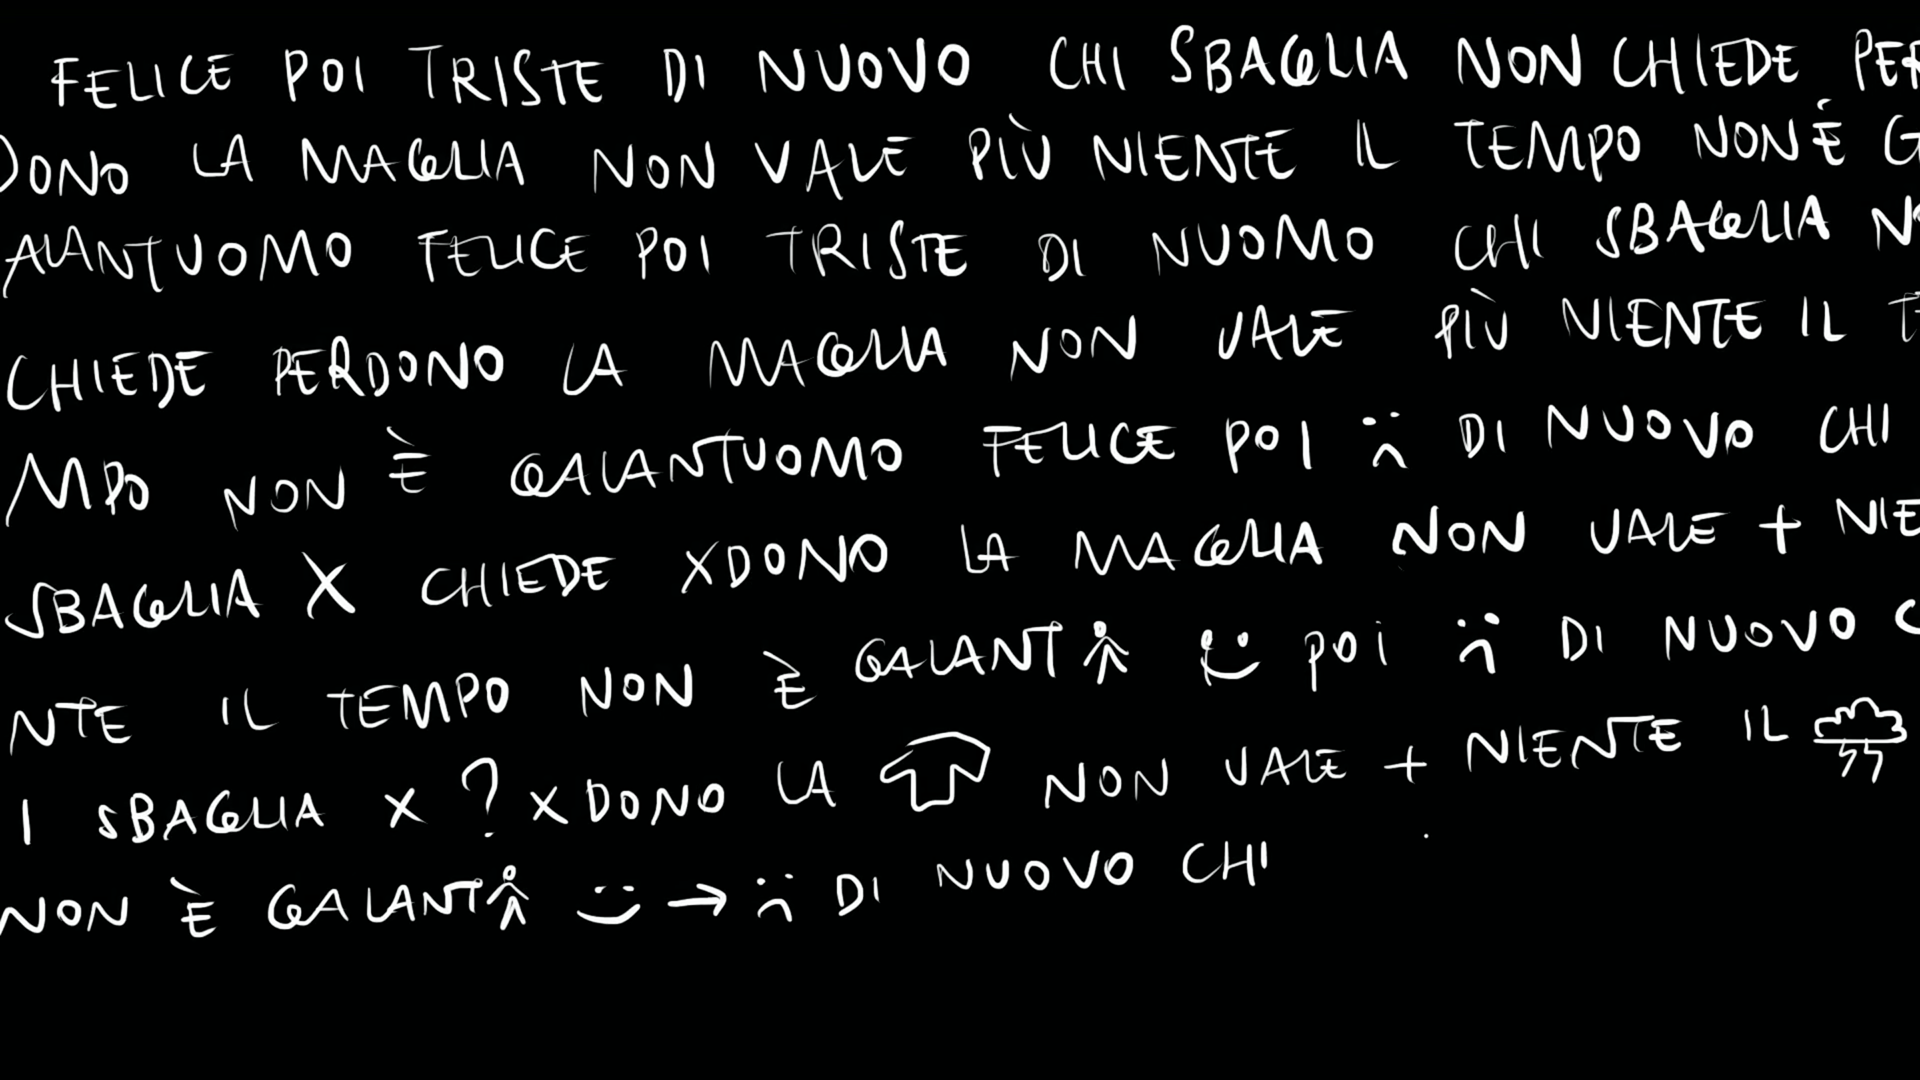 FELICE POI TRISTE DI NUOVO CHI SBAGLIA NON CHIEDE PER
DONO LA MAGLIA NON VALE PIÙ NIENTE IL TEMPO NON È G
ALANTUOMO FELICE POI TRISTE DI NUOMO CHI SBAGLIA NO
CHIEDE PERDONO LA MAGLIA NON VALE PIÙ NIENTE IL TE
MPO NON È GALANTUOMO FELICE POI :( DI NUOVO CHI
SBAGLIA X CHIEDE XDONO LA MAGLIA NON VALE + NIE
NTE IL TEMPO NON È GALANT POI :( DI NUOVO C
I SBAGLIA X ? X DONO LA NON VALE + NIENTE IL
NON È GALANT :) → :( DI NUOVO CHI